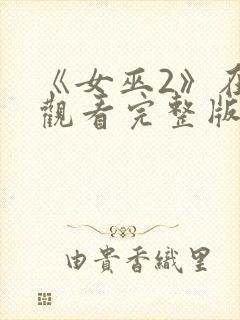 《女巫2》在
觀看完整版
由貴香織里